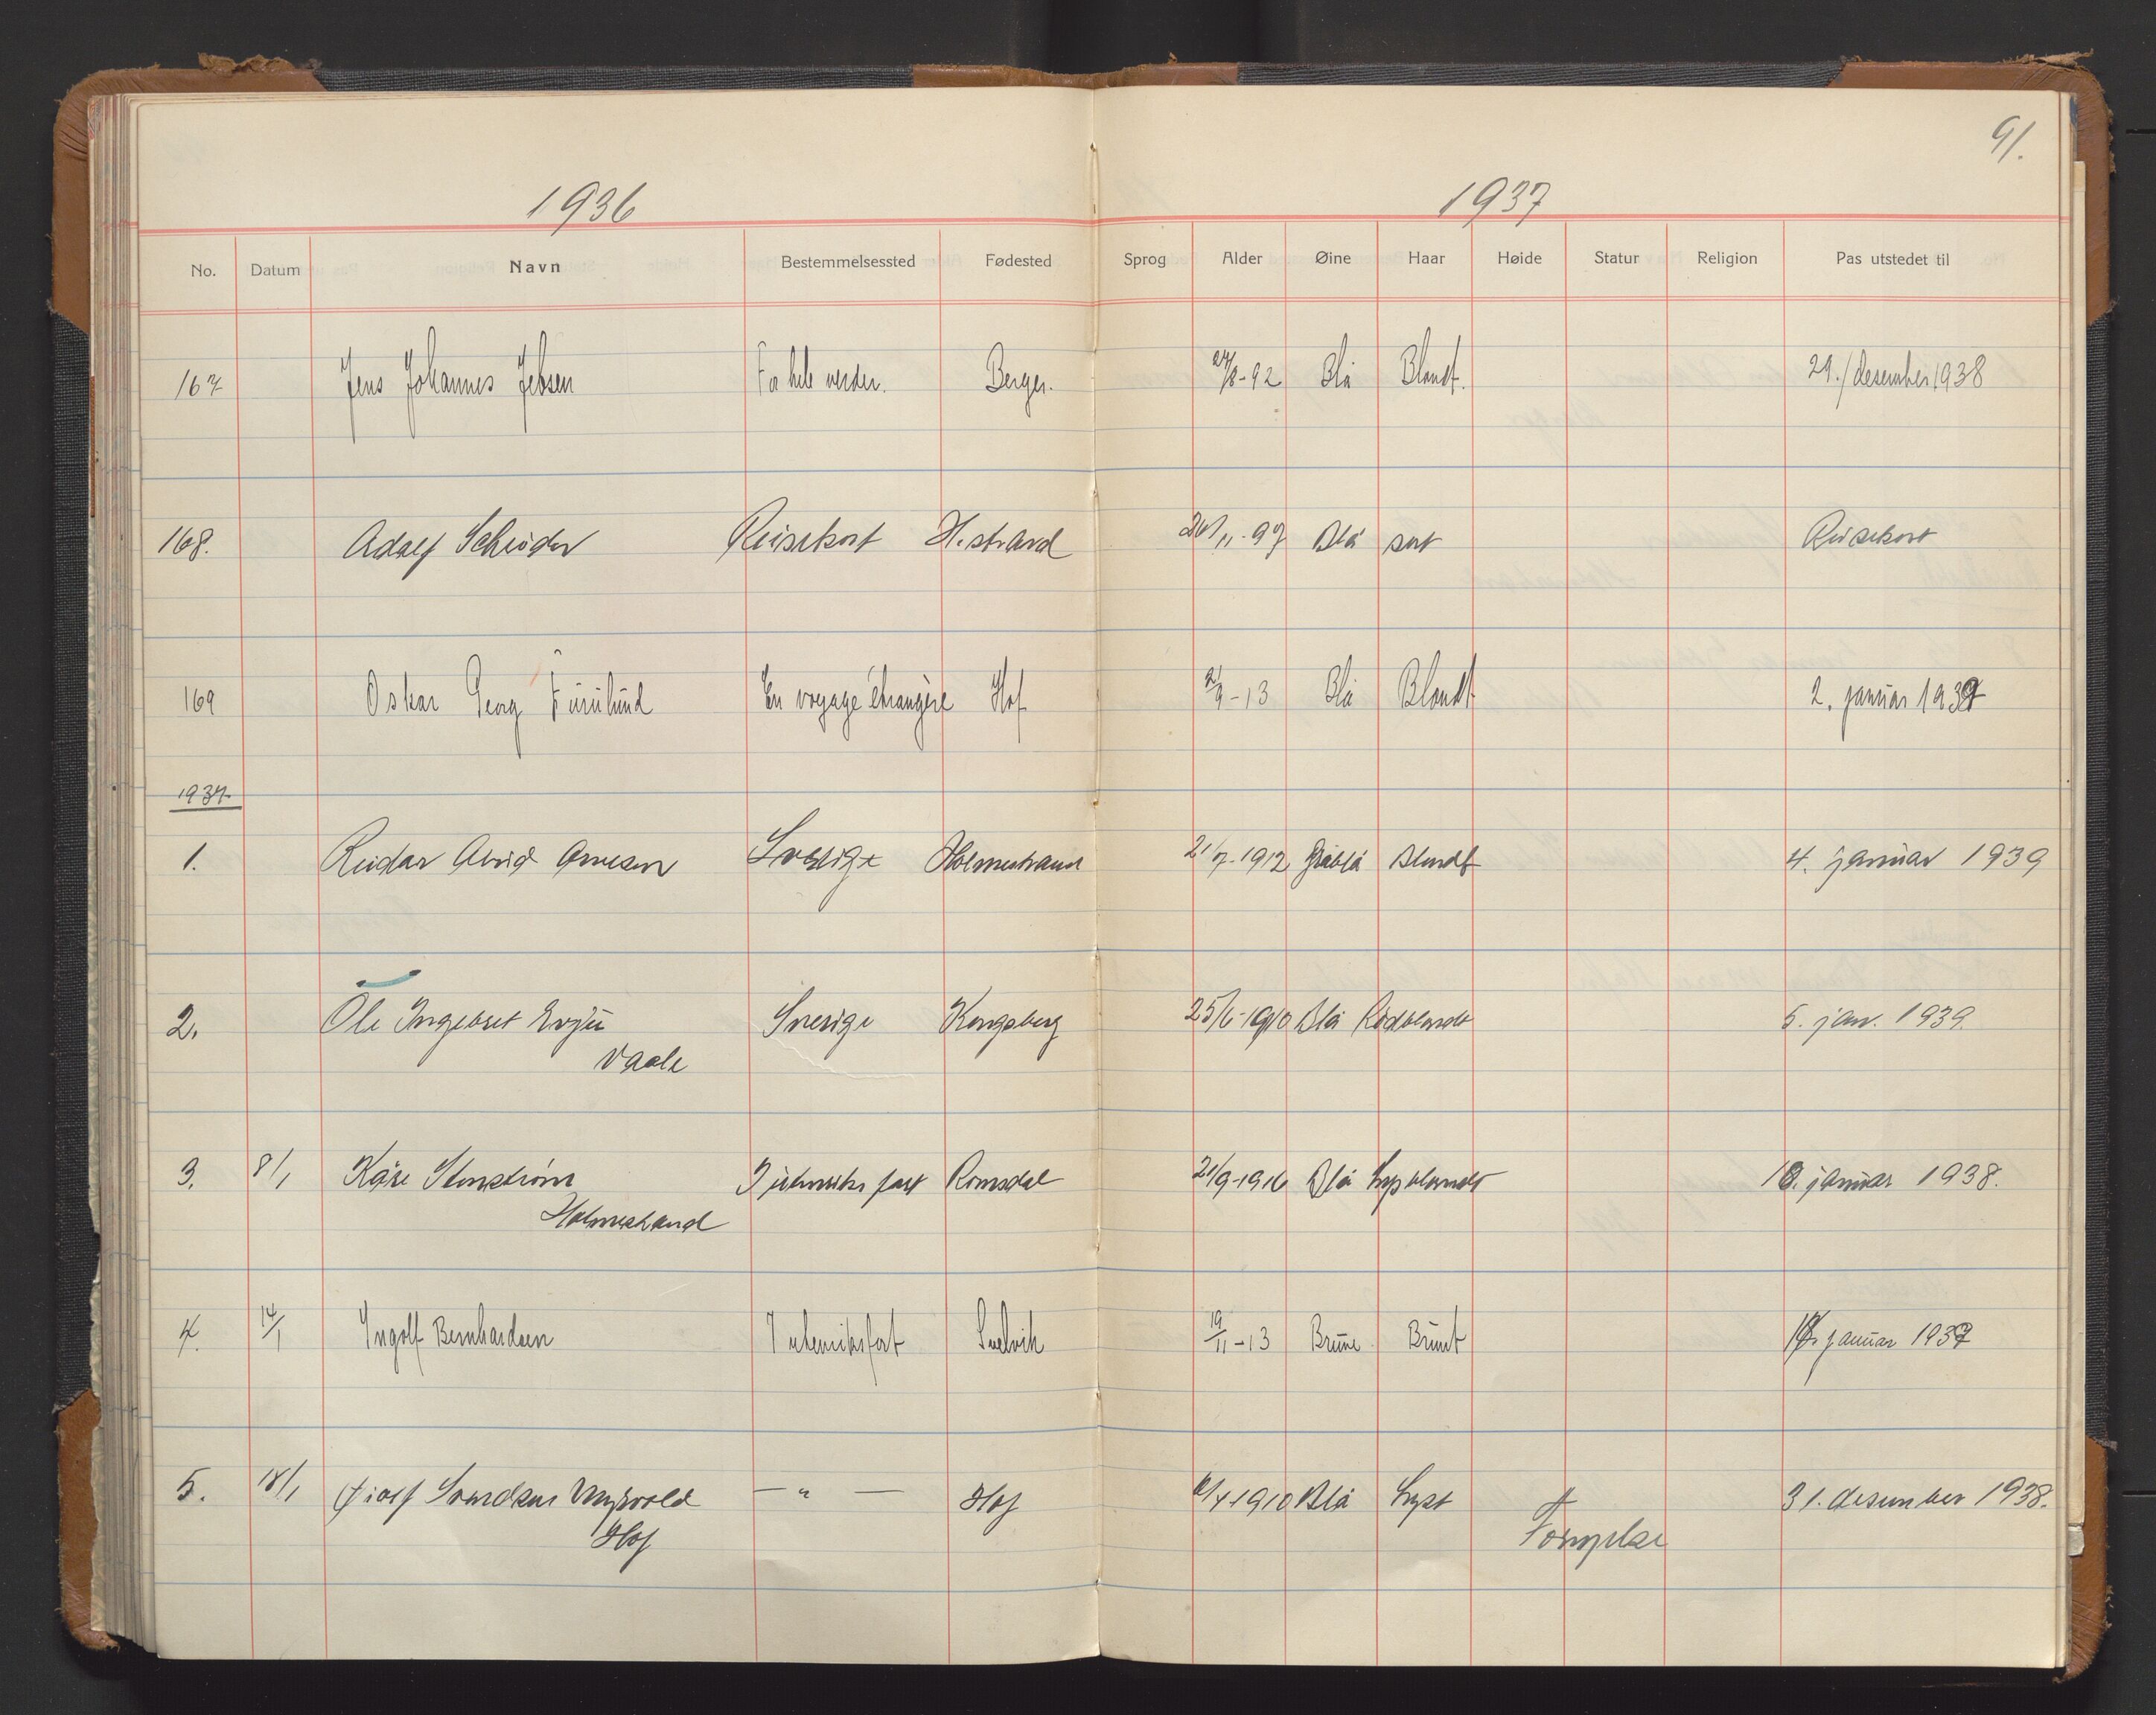 91.
1936 1937
No. Datum Navn Bestemmelsessted Fødested Sprog Alder Øine Haar Høide Statur Religion Pas utstedet til
167 Jens Johannes Jebsen For hele verden. Berger. 27/8-92 Blå Blondt. 29./desember 1938
168. Adolf Schrøder Reisekort H.strand 26/11-97 Blå sort Reisekort
169 Oskar Georg En voyage étrangère Hof 2/9-13 Blå Blondt 2. januar 1939
1937
1. Reidar Arvid Arnesen Sverige Holmestrand 21/7-1912 Gråblå Blondt 4. januar 1939
2. Ole Ingebret Evju Sverige Kongsberg 25/6-1910 Blå Rødblondt 5. jan. 1939.
Vaale
3. 8/1 Kåre Stenstrøm I utenriks fart Romsdal 21/9-1916 Blå Lysblondt 18. januar 1938.
Holmestrand
4. 14/1 Ingolf Bernhardsen I utenriksfart Svelvik 19/11-13 Brune Brunt januar 1937
5. 18/1 — " — Hof 1910 Blå Lyst 31. desember 1938.
Hof Fornyelse